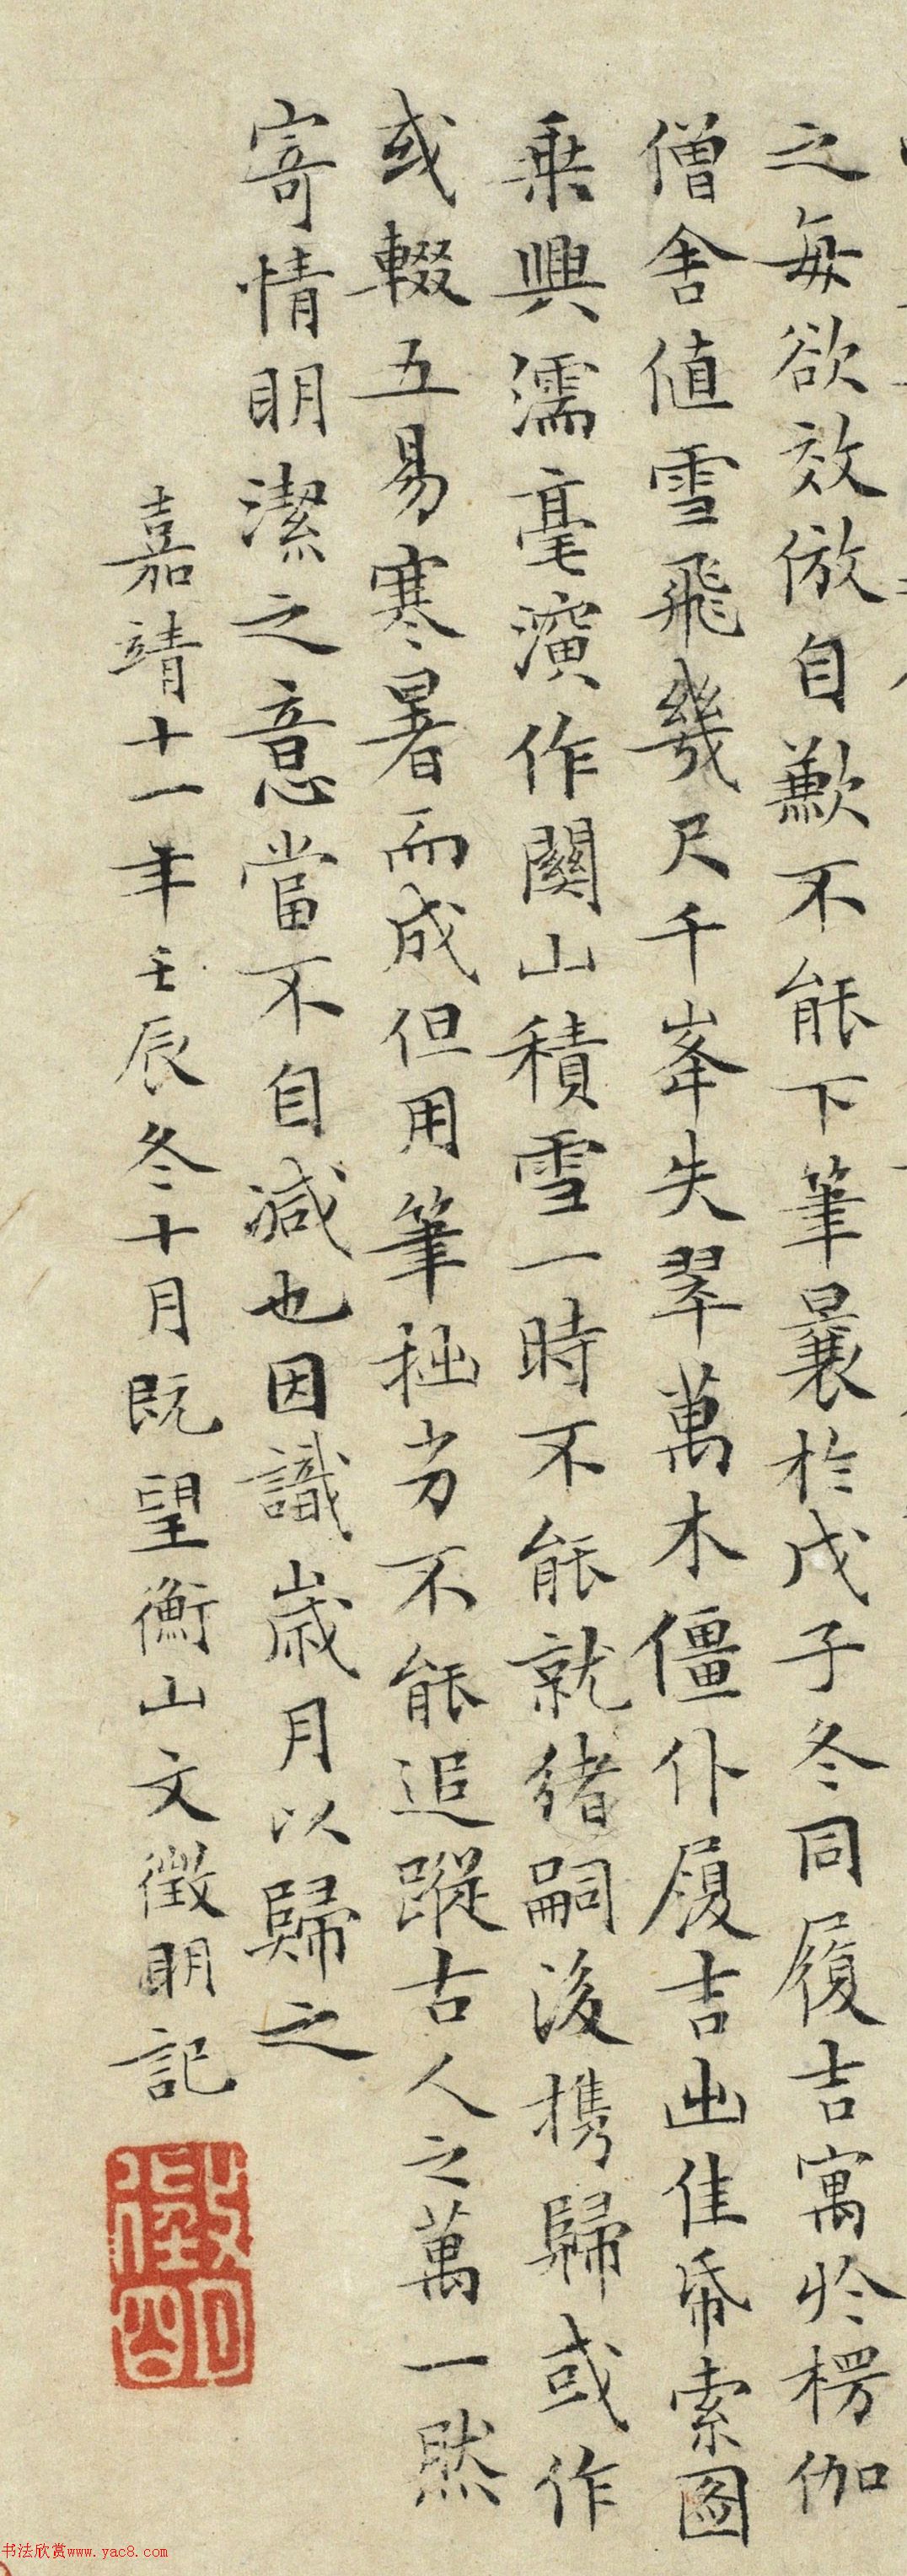 之每欲效倣自歉不能下筆曩於戊子冬同履吉寓於楞伽
僧舍值雪飛幾尺千峯失翠萬木僵仆履吉出佳帋索圖
乗興濡毫演作關山積雪一時不能就緒嗣後携歸或作
或輟五易寒暑而成但用筆拙劣不能追蹤古人之萬一然
寄情明潔之意當不自減也因識歲月以歸之
嘉靖十一年壬辰冬十月既望衡山文徵明記
徵明
书法欣赏www.yac8.com